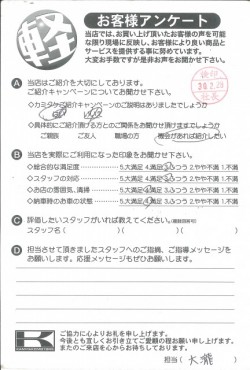 軽
お客様アンケート
当店では、お買い上げ頂いたお客様の声を可能
な限り現場に反映し、お客様により良い商品と
サービスを提供する事に努めています。
大変お手数ですが是非お声をお聞かせ下さい。
A 当店はご紹介を大切にしております。
ご紹介キャンペーンについてお聞かせ下さい。
○カミタケご紹介キャンペーンの説明はありましたでしょうか
○具体的にご紹介頂ける方とのご関係をお聞かせ頂けますでしょうか
ご親族 ご友人 職場の方 機会があれば紹介したい
B 当店を実際にご利用になった印象をお聞かせ下さい。
○総合的な満足度 5.大満足 4.満足 3.ふつう 2.やや不満 1.不満
○スタッフの対応 5.大満足 4.満足 3.ふつう 2.やや不満 1.不満
○お店の雰囲気、清掃 5.大満足 4.満足 3.ふつう 2.やや不満 1.不満
○納車時のお車の状態 5.大満足 4.満足 3.ふつう 2.やや不満 1.不満
C 評価したいスタッフがいれば教えてください。
スタッフ名( )( )( )
D 担当させて頂きましたスタッフへのご指摘、ご指導メッセージを
お願いします。応援メッセージもぜひお願いします。
K
ご協力に心よりお礼を申し上げます。
今後とも宜しくお引き立てご愛顧の程お願い申し上げます。
またのご来店を心からお待ちしております。
担当( 大瀧 )